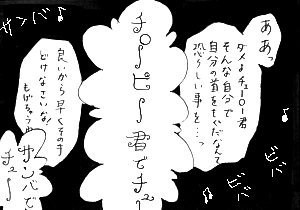 ああっ
ダメよチューロー君
そんな自分で
自分の首をもぐだなんて
恐ろしい事を…っ
チ〜ピ〜君でチュ〜
良いから早くその手
どけなさいな!
もげちゃうわ
サンバで
チュ〜
サンバ♪
ビバ
ビバ
♪